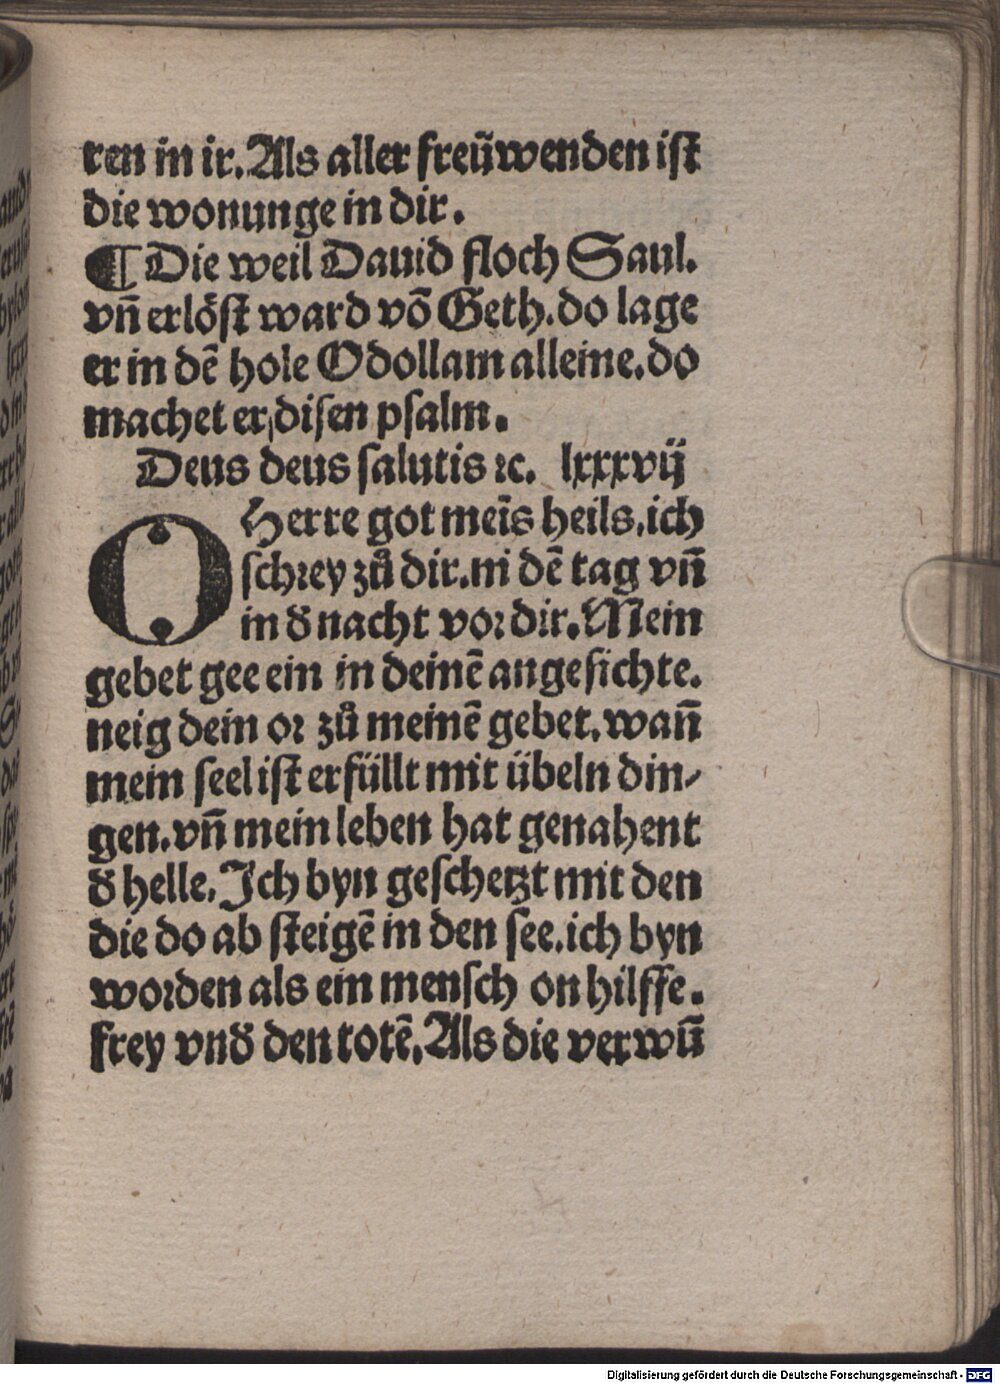 ren in ir. Als aller freüwenden ist
die wonunge in dir.
¶ Die weil Dauid floch Saul.
vñ erlöst ward võ Geth. do lage
er in dẽ hole Odollam alleine. do
machet er disen psalm.
Deus deus salutis ꝛc. lxxxvij
O Herre got meĩs heils, ich
schrey zů dir. in dẽ tag vñ
in d̕ nacht vor dir. Mein
gebet gee ein in deinẽ angesichte.
neig dein or zů meinẽ gebet. wañ
mein seel ist erfüllt mit übeln din⸗
gen. vñ mein leben hat genahent
d̕ helle. Ich byn geschetzt mit den
die do ab steigẽ in den see. ich byn
worden als ein mensch on hilffe.
frey vnd̕ den totẽ. Als die verwũ
Digitalisierung gefördert durch die Deutsche Forschungsgemeinschaft - DFG